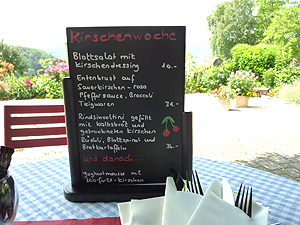 Kirschenwoche
Blattsalat mit
kirschendressing 10.-
Entenbrust auf
Sauerkirschen - rosa
Pfeffersauce, Broccoli
Teigwaren 34.-
Rindsinvoltini gefüllt
mit kalbsbrät und
getrockneten kirschen
Rüebli, Blattspinat und
Bratkartoffeln 34.-
und danach...
Yoghurtmousse mit
kirschen